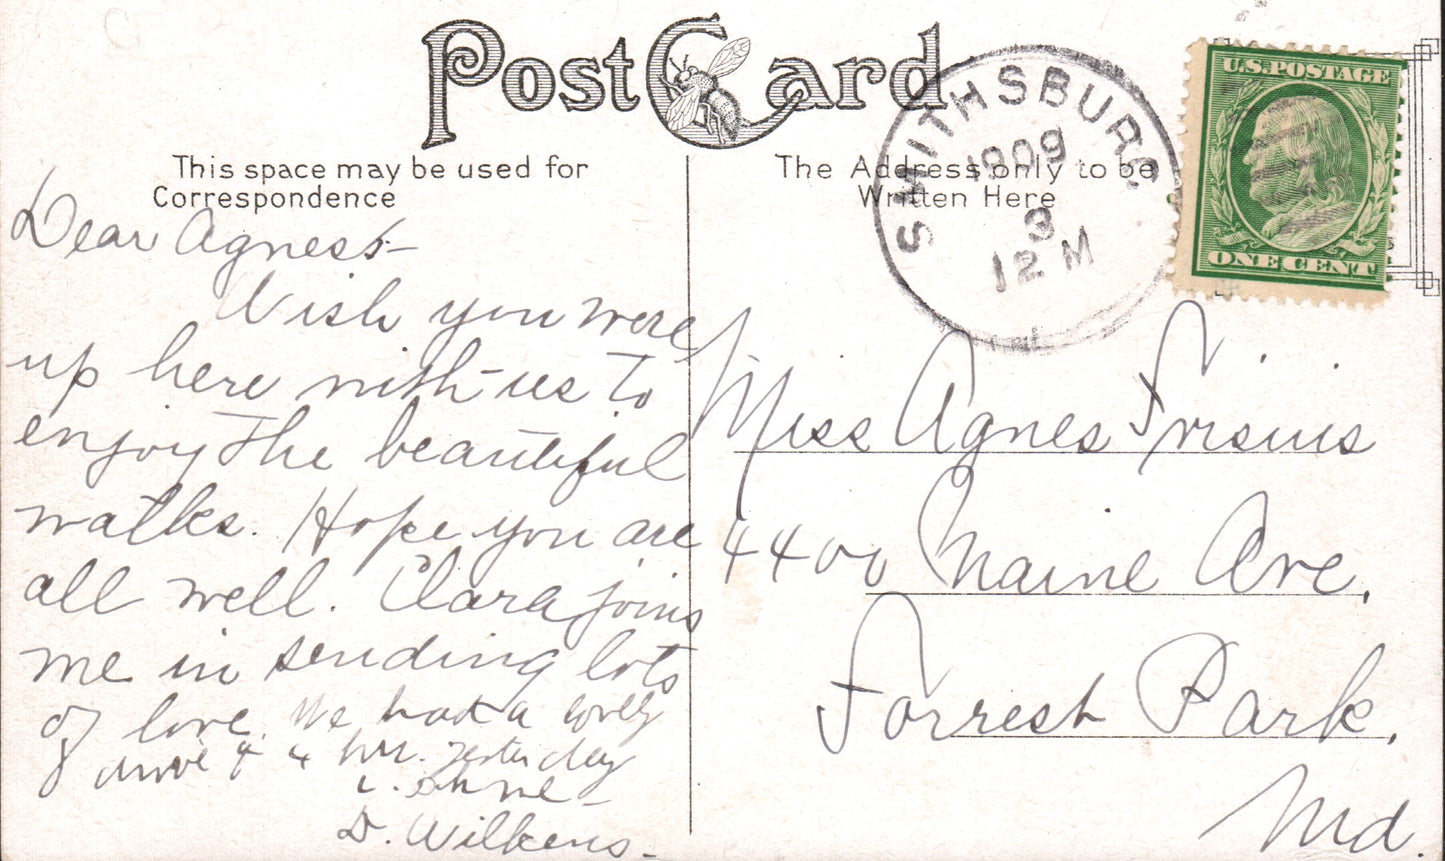 Post Card
This space may be used for
Correspondence
The Address only to be
Written Here
SMITHSBURG
1909
3
12 M
U.S. POSTAGE
ONE CENT
Dear Agnes:-
Wish you were
up here with us to
enjoy the beautiful
walks. Hope you are
all well. Clara joins
me in sending lots
of love. We had a lovely
drive of 4 hrs. yesterday
D. Wilkens
Miss Agnes Frisius
4400 Maine Ave,
Forrest Park,
Md.